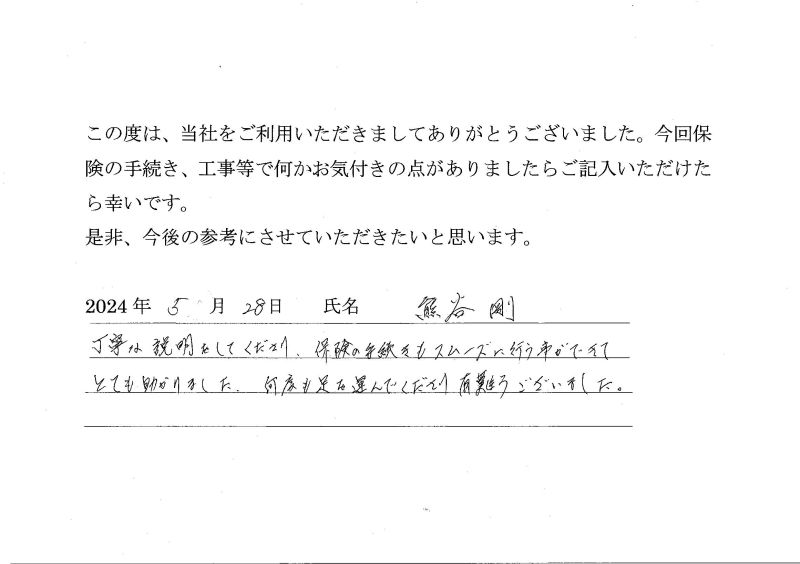 この度は、当社をご利用いただきましてありがとうございました。今回保
険の手続き、工事等で何かお気付きの点がありましたらご記入いただけた
ら幸いです。
是非、今後の参考にさせていただきたいと思います。
2024 年 5 月 28日 氏名 熊谷 剛
丁寧な説明をしてくださり、保険の手続きもスムーズに行う事ができて
とても助かりました。何度も足を運んでくださり有難うございました。